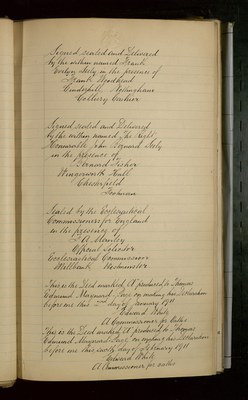 Signed, sealed and Delivered
by the within named Frank
Evelyn Seely in the presence of
Frank Woodhead
Cinderhill, Nottingham
Colliery Cashier
Signed, sealed and Delivered
by the within named the Right
Honourable John Bernard Seely
in the presence of
Bernard Fisher
Wingerworth Hall
Chesterfield
Footman
Sealed by the Ecclesiastical
Commissioners for England
in the presence of
Official Solicitor
Ecclesiastical Commission
Millbank Westminster
This is the Deed marked A produced to Thomas
Edward Maynard Junr on making his Declaration
before me this 2nd day of January 1911
Edward White
A Commissioner for Oaths
This is the Deed marked A produced to Thomas
Edward Maynard Junr on making his Declaration
before me this day of February 1911
Edward White
A Commissioner for oaths